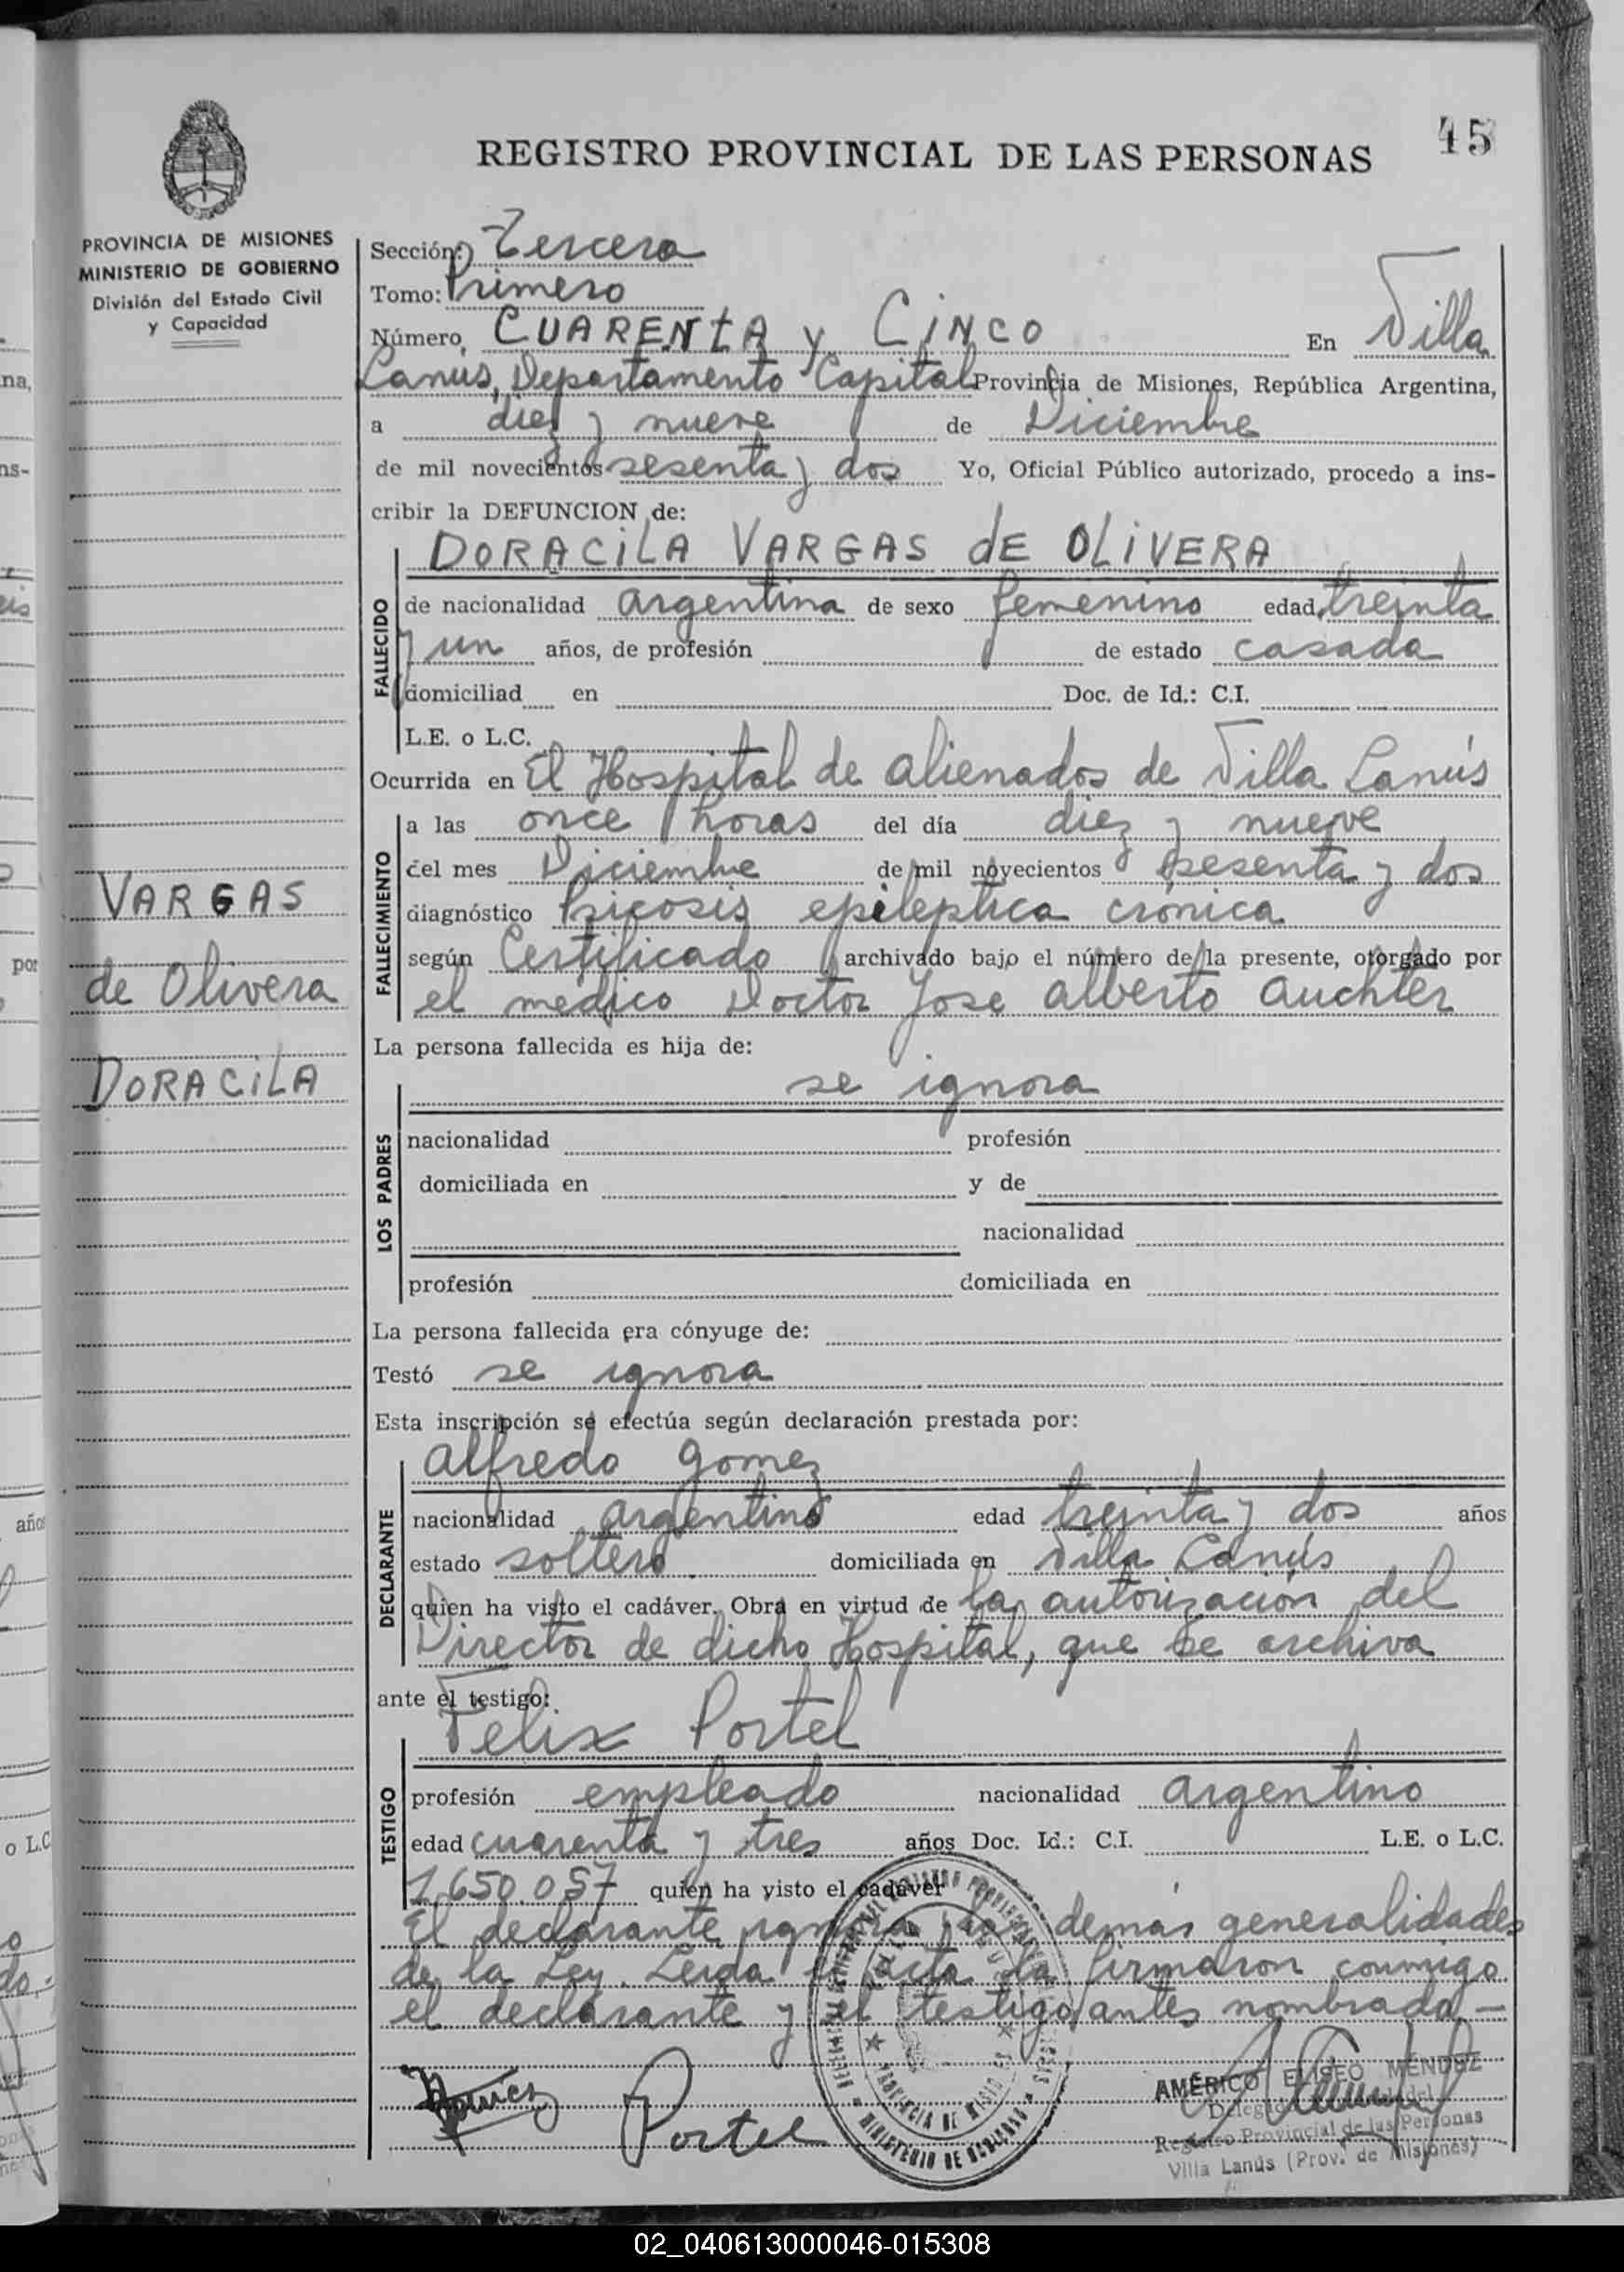 45
REGISTRO PROVINCIAL DE LAS PERSONAS
PROVINCIA DE MISIONES
MINISTERIO DE GOBIERNO
División del Estado Civil
y Capacidad
Sección: Tercera
Tomo: Primero
Número, CUARENTA y CINCO En Villa
Lanus, Departamento Capital Provincia de Misiones, República Argentina,
a diez y nueve de Diciembre
de mil novecientos sesenta y dos Yo, Oficial Público autorizado, procedo a ins-
cribir la DEFUNCION de:
DORACILA VARGAS dE OLIVERA
FALLECIDO
de nacionalidad argentina de sexo femenino edad treinta
y un años, de profesión de estado casada
domiciliad en Doc. de Id.: C.I.
L.E. o L.C.
Ocurrida en El Hospital de alienados de Villa Lanús
FALLECIMIENTO
a las once horas del día diez y nueve
del mes Diciembre de mil novecientos sesenta y dos
diagnóstico Psicosis epileptica cronica
según Certificado archivado bajo el número de la presente, otorgado por
el medico Doctor Jose alberto auchter
VARGAS
de Olivera
DORACILA
La persona fallecida es hija de:
se ignora
LOS PADRES
nacionalidad profesión
domiciliada en y de
nacionalidad
profesión domiciliada en
La persona fallecida era cónyuge de:
Testó se ignora
Esta inscripción se efectúa según declaración prestada por:
alfredo gomez
DECLARANTE
nacionalidad argentino edad treinta y dos años
estado soltero domiciliada en Villa Lanús
quien ha visto el cadáver. Obra en virtud de la autorización del
Director de dicho Hospital, que se archiva
ante el testigo:
Felix Portel
TESTIGO
profesión empleado nacionalidad argentino
edad cuarenta y tres años Doc. Id.: C.I. L.E. o L.C.
1.650.057 quien ha visto el cadáver
El declarante ignora las demás generalidades
de la Ley. Leida el acta la firmaron conmigo
el declarante y el testigo antes nombrado -
Gomez Portel
AMÉRICO ELISEO MÉNDEZ
Registro Provincial de las Personas
Villa Lanús (Prov. de Misiones)
PROVINCIA DE MISIONES
MINISTERIO DE GOBIERNO
02_040613000046-015308